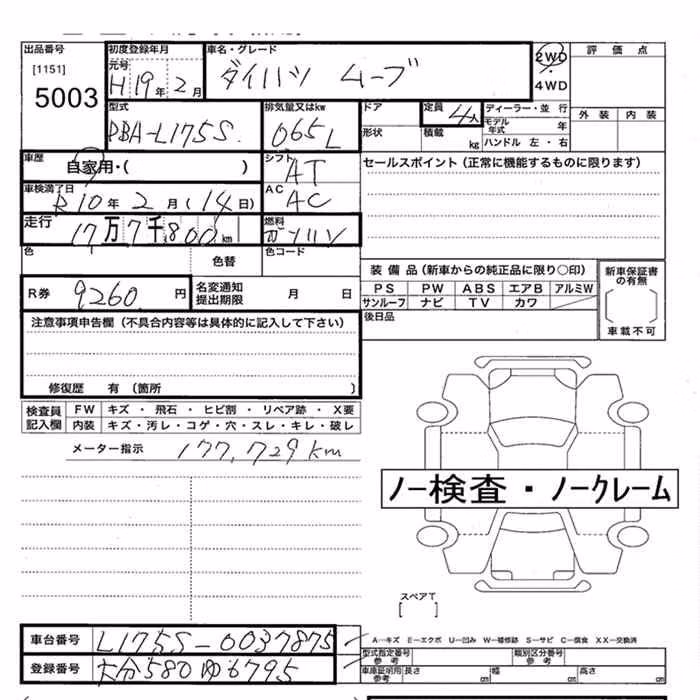 出品番号
[1151]
5003
初度登録年月
元号
H19年2月
車名・グレード
ダイハツ ムーブ
2WD
・
4WD
評価点
外装 内装
型式
DBA-L175S
排気量又はkw
065L
ドア
形状
定員
4人
積載
kg
ディーラー・並行
モデル年式 年
ハンドル 左・右
車歴
自家用・( )
シフト
AT
セールスポイント(正常に機能するものに限ります)
車検満了日
R10年2月(14日)
AC
AC
走行
17万7千800km
燃料
ガソリン
色
色替
色コード
装備品(新車からの純正品に限り○印)
PS PW ABS エアB アルミW
サンルーフ ナビ TV カワ
新車保証書の有無
車載不可
R券
9260円
名変通知
提出期限
月 日
後日品
注意事項申告欄(不具合内容等は具体的に記入して下さい)
修復歴 有(箇所 )
検査員
記入欄
FW キズ・飛石・ヒビ割・リペア跡・X要
内装 キズ・汚レ・コゲ・穴・スレ・キレ・破レ
メーター指示
177,729km
ノー検査・ノークレーム
スペアT
[ ]
車台番号
L175S-0037875
登録番号
大分580ゆ6795
A…キズ E…エクボ U…凹み W…補修跡 S…サビ C…腐食 XX…交換済
型式指定番号
参考
類別区分番号
参考
車庫証明用
参考
長さ cm
幅 cm
高さ cm